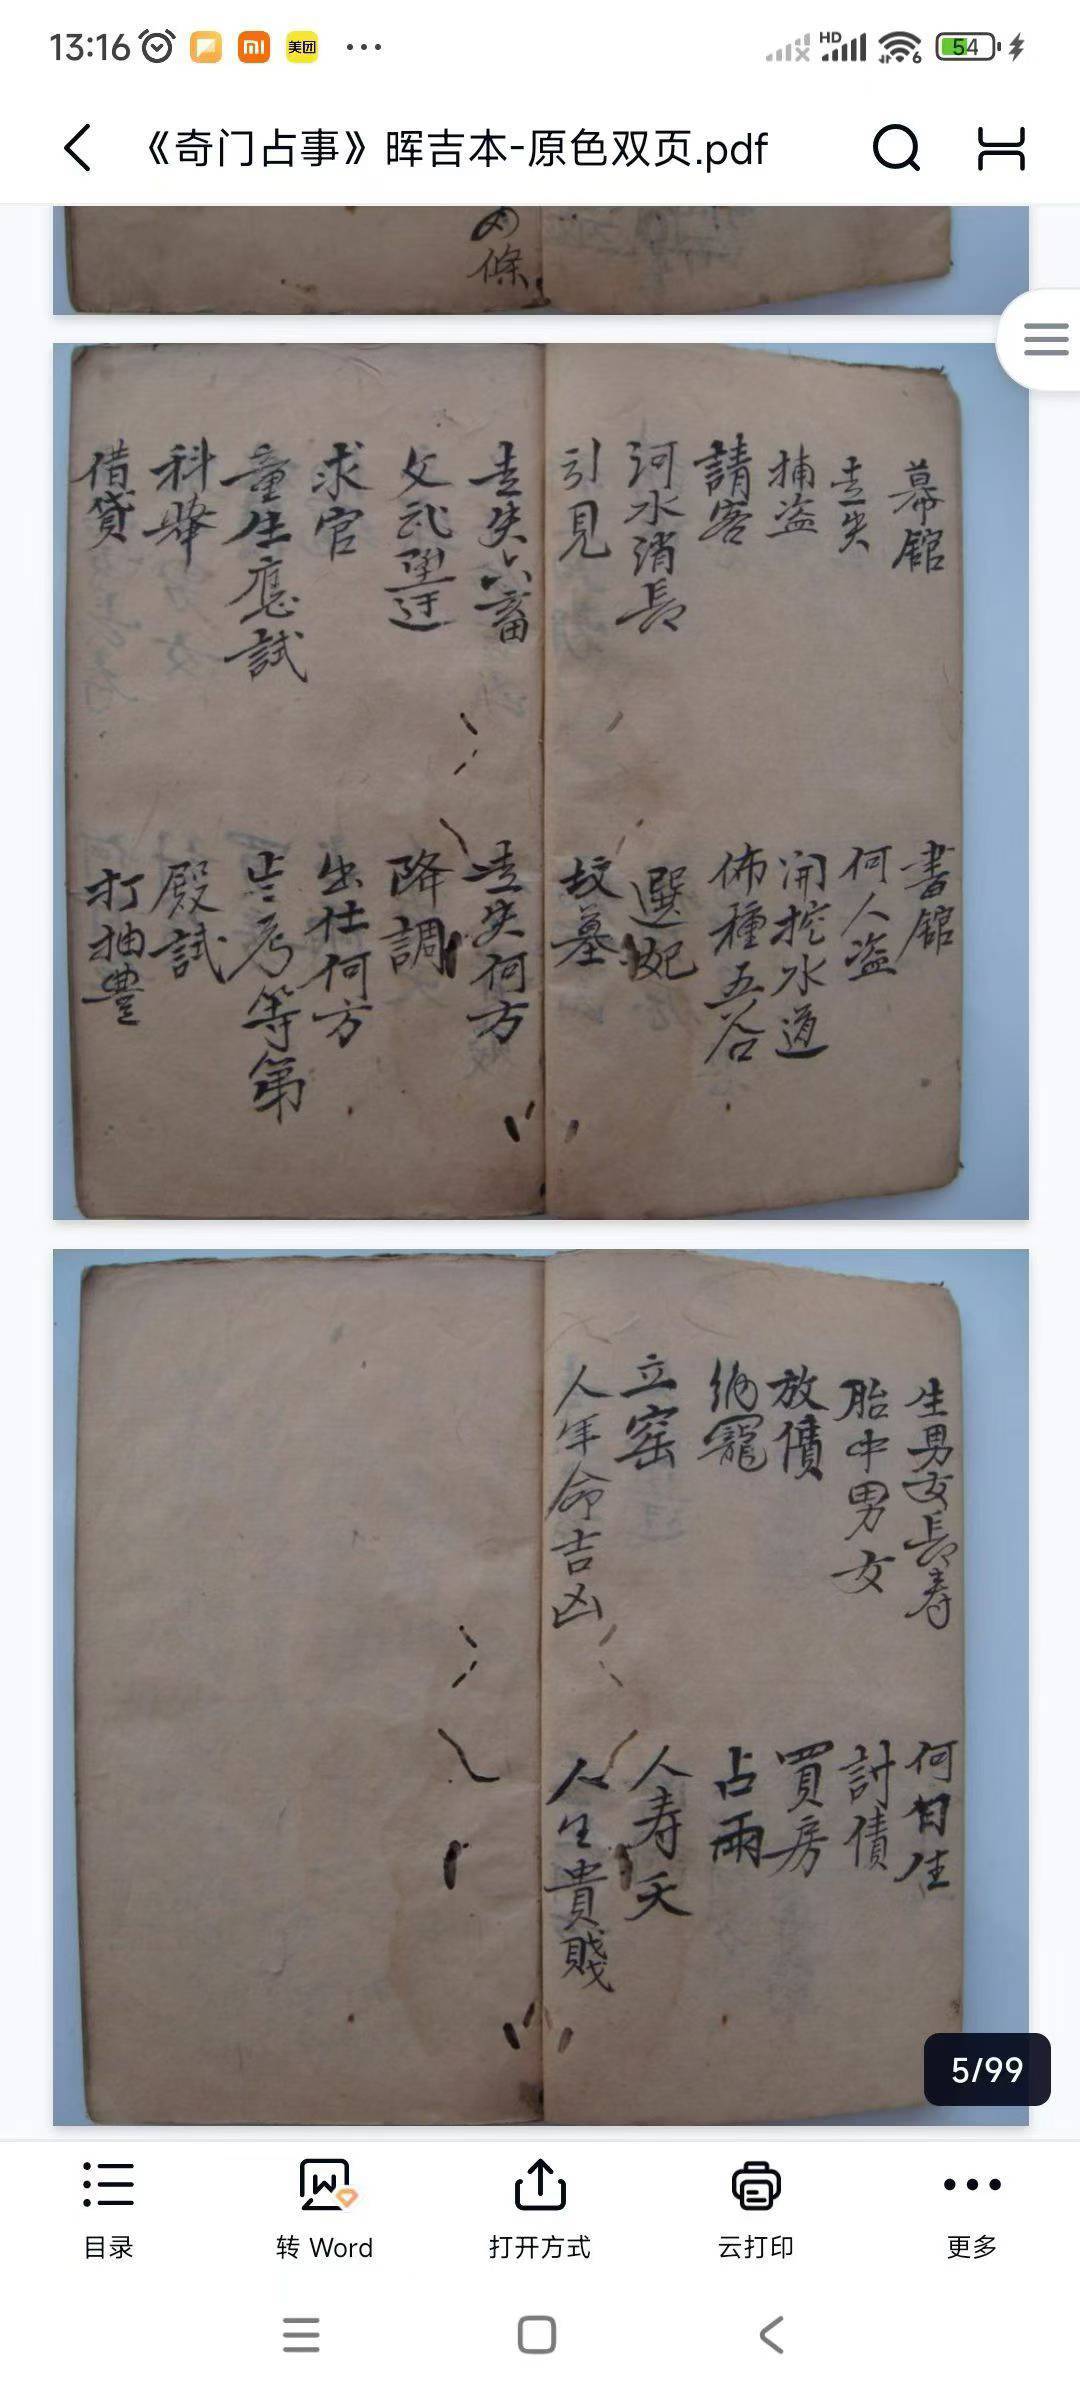 13:16
美团
HD
6
54
《奇门占事》晖吉本-原色双页.pdf
條
幕館
書館
走失
何人盗
捕盗
開挖水道
請客
佈種五谷
河水消長
選妃
引見
坟墓
走失六畜
走失何方
文武陞迁
降調
求官
出仕何方
童生應試
考等第
科舉
殿試
借貸
打抽豊
生男女長寿
何日生
胎中男女
討債
放債
買房
納寵
占雨
立窑
人寿夭
人年命吉凶
人生貴賤
5/99
目录
转 Word
打开方式
云打印
更多